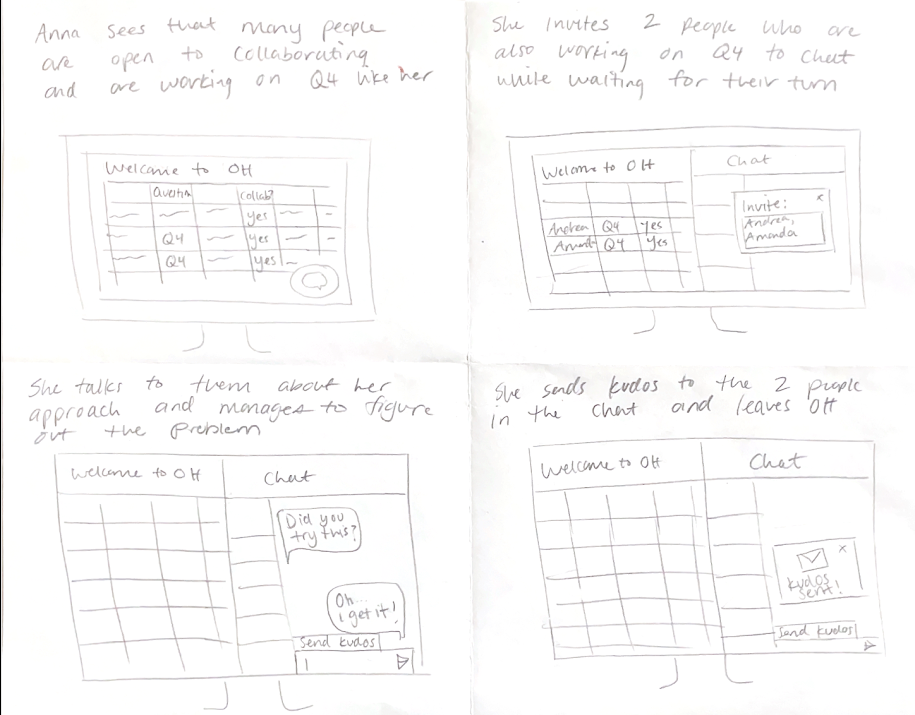 Anna sees that many people
are open to collaborating
and are working on Q4 like her
Welcome to OH
Question
Collab?
yes
Q4
yes
Q4
yes
She invites 2 people who are
also working on Q4 to chat
while waiting for their turn
Welcome to OH
Chat
Andrea Q4 Yes
Amand Q4 Yes
Invite: x
Andrea,
Amanda
She talks to them about her
approach and manages to figure
out the problem
Welcome to OH
Chat
Did you
try this?
Oh...
i get it!
Send kudos
She sends kudos to the 2 people
in the chat and leaves OH
Welcome to OH
Chat
x
kudos
sent!
Send kudos